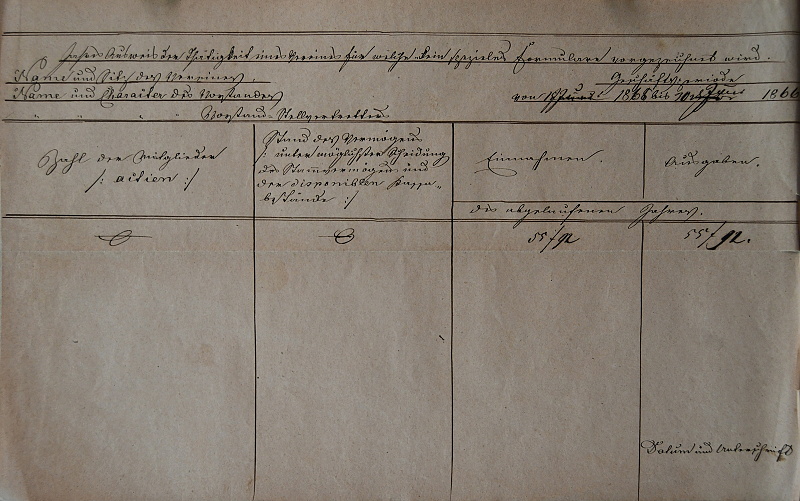 Jahres Ausweis der Thätigkeit eines Vereines für welche kein spezieles Formulare vorgezeichnet wird.
Name und Sitz des Vereines.
Geschäftsperiode
Name und Charakter des Vorstandes
von 1 1865 bis 1866
" " " " Vorstand-Stellvertretters
Zahl der Mitglieder
/: actien :/
Stand des Vermögens
/: unter möglichster Scheidung
des Stammvermögens und
der disponiblen Kassa-
bestände :/
Einnahmen.
Ausgaben.
des abgelaufenen Jahres.
55 f 92
55 f 92.
Datum und Unterschrift